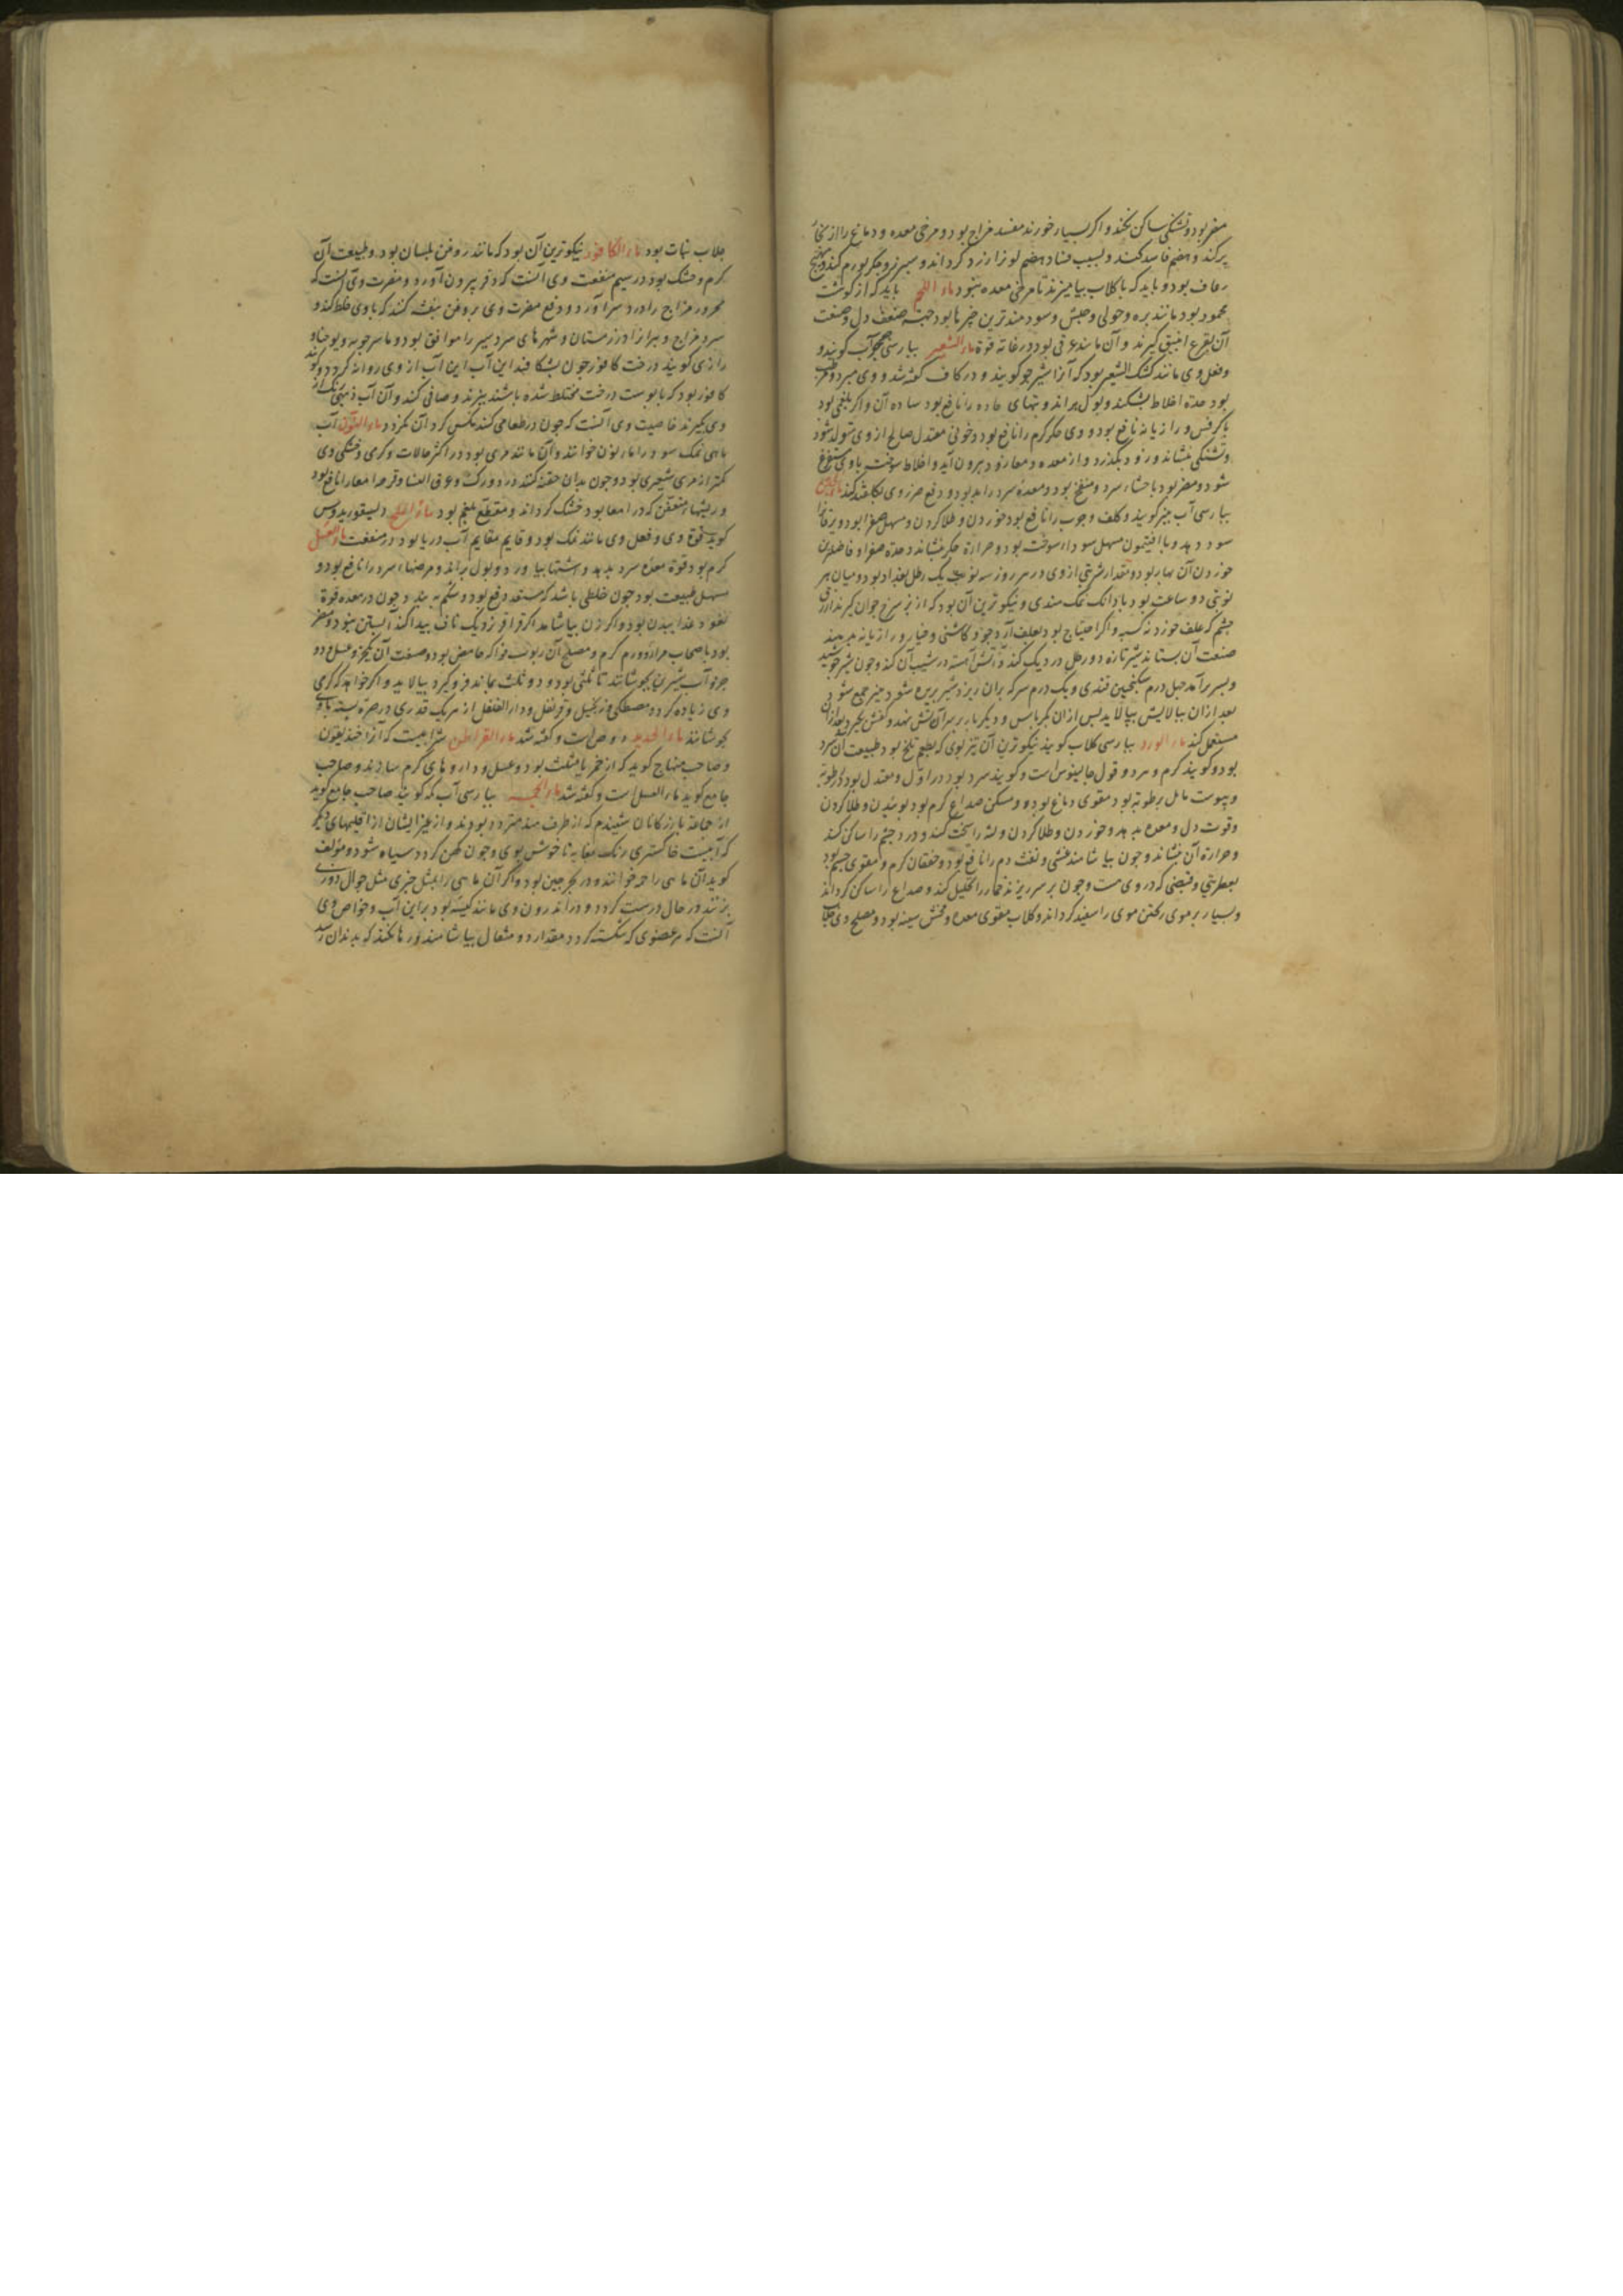 مضر بود و تشنگی ساکن نکند و اگر بسیار خورند مفسد مزاج بود و مرخی معده و دماغ را از بخار
پر کند و هضم فاسد کند و بسبب فساد هضم لون را زرد کرداند و سپرز و جگر بورم کند و مهیج
رعاف بود و باید که با کلاب بیامیزند تا مرخی معده نبود ماء اللحم باید که از کوشت
محمود بود مانند بره و حولی و سودمندترین چیزها بود جهة ضعف دل و صنعت
آن بقرع انبیق کیرند و آن مانند عرقی بود در غایة قوة ماء الشعیر بپارسی آب کویند و
وفعل وی مانند کشک الشعیر بود که آنرا شیر جو کویند و در کاف کفته شد و وی مبرد و مرطب
بود حدة اخلاط بشکند و بول براند و تبهای حاده را نافع بود ساده آن و اگر بلغمی بود
با کرفس و رازیانه نافع بود و وی جگر کرم را نافع بود و خونی معتدل صالح از وی متولد شود
و تشنگی بنشاند و زود بگذرد و از معده و معا زود بیرون آید و اخلاط سوخته با وی مستفرغ
شود و مضر بود باحشاء سرد و منفخ بود و معدۀ سرد را بد بود و دفع ضرر وی بکلقند کنند ماء الجبن
بپارسی آب پنیر کویند و کلف و جرب را نافع بود خوردن و طلا کردن و مسهل صفرا بود و یرقانرا
سود دهد و با افتیمون مسهل سوداء سوخته بود و حرارة جگر بنشاند و حدة صفرا و فاضلترین
خوردن آن بهار بود و مقدار شربتی از وی در هر روز سه نوبت یک رطل بغداد بود و میان هر
نوبتی دو ساعت بود با دانک نمک هندی و نیکوترین آن بود که از بز سرخ جوان کیرند ازرق
چشم که علف خورد نه کسبه و اگر احتیاج بود بعلف آرد جو و کاشنی و خیار و رازیانه بدهند
صنعت آن بستانند شیر تازه دو رطل در دیک کند و آتش آهسته در شیب آن کند و چون شیر جوشید
و بسر برآمد چهل درم سکنجبین قندی و یک درم سرکه بران ریزد شیر بریده شود و پنیر جمع شود
بعد از ان ببالایش بپالاید پس از ان بکرباس و دیگر بار بر سر آتش نهد و کفش بگیرد بعد از ان
مستعمل کند ماء الورد بپارسی کلاب کویند نیکوترین آن تیزبوی که بطعم تلخ بود طبیعت آن سرد
بود و کویند کرم و سرد و قول جالینوس است و کویند سرد بود در اول و معتدل بود در رطوبة
و یبوست مایل برطوبة بود مقوی دماغ بود و مسکن صداع کرم بود بوئیدن و طلا کردن
و قوت دل و معده بدهد و خوردن و طلا کردن و لثه را سخت کند و درد چشم را ساکن کند
و حرارة آن بنشاند و چون بیاشامند غشی و نفث دم را نافع بود و خفقان کرم و مقوی جسم بود
بعطریتی و قبضی که در وی هست و چون بر سر ریزند خمار را تحلیل کند و صداع را ساکن کرداند
و بسیار بر موی ریختن موی را سفید کرداند و کلاب مقوی معده و مخشن سینه بود و مصلح وی جلاب
جلاب نبات بود ماء الکافور نیکوترین آن بود که مانند روغن بلسان بود و طبیعت آن
کرم و خشک بود در سیم منفعت وی آنست که و مضرت وی آنست که
محرور مزاج را درد سر آورد و دفع مضرت وی بروغن بنفشه کنند که با وی خلط کند و
سرد مزاج و پیرانرا در زمستان و شهرهای سردسیر را موافق بود و ماسرجویه و یوحنا و
رازی کویند درخت کافور چون بشکافند این آب از وی روانه کردد و کویند
کافور بود که با پوست درخت مختلط شده باشند بپزند و صافی کنند و آن آب
وی بگیرند خاصیت وی آنست که چون در طعامی کنند مکس کرد آن نکردد ماء النون آب
ماهی نمک سود را ماء نون خوانند و آن مانند مری بود در اکثر حالات و کرمی و خشکی وی
کمتر از مری شعیری بود و چون بدان حقنه کنند درد ورک و عرق النسا و قرحۀ امعا را نافع بود
و ریشهاء متعفن که در امعا بود خشک کرداند و مقطع بلغم بود ماء الملح دیسقوریدوس
کوید قوة وی و فعل وی مانند نمک بود و قایم مقام آب دریا بود در منفعت ماء العسل
کرم بود قوة معده سرد بدهد و اشتها بیاورد و بول براند و مرضهاء سرد را نافع بود و
مسهل طبیعت بود چون خلطی باشد که مستعد دفع بود و شکم ببندد چون در معده قوة
نفوذ غذا ببدن بود و اگر زن بیاشامد اگر قراقر نزدیک ناف پیدا کند آبستن بود و مضر
بود باصحاب مرار و ورم کرم و مصلح آن ربوب فواکه حامض بود و صنعت آن یک جزو عسل و دو
جزو آب شیرین بجوشانند تا ثلثی برود و دو ثلث بماند فرو کیرد بپالاید و اگر خواهد که کرمی
وی زیاده کردد مصطکی و زنجبیل و قرنفل و دار الفلفل از هر یک قدری در صره بسته با وی
بجوشانند ماء الحدید و کفته شد ماء القراطن شرابیست که آنرا خندیقون
و صاحب منهاج کوید که از خمر یا مثلث بود و عسل و داروهای کرم سازند و صاحب
جامع کوید ماء العسل است و کفته شد بپارسی آب کویند صاحب جامع کوید
از جماعة بازرکانان شنیدم که از طرف هند متردد بودند و از غیر ایشان از اقلیمهای دیگر
که آبیست خاکستری رنک بغایة ناخوش بوی و چون کهن کردد سیاه شود و مؤلف
کوید آن ماهی را خوانند و در بحر چین بود و اگر آن ماهی را بمثل چیزی مثل جوال دوزی
بزنند در حال درست کردد و در اندرون وی مانند کیسه بود پر این آب و خواص وی
آنست که هر عضوی که شکسته کردد مقدار دو مثقال بیاشامند و رها نکند که بدندان رسد